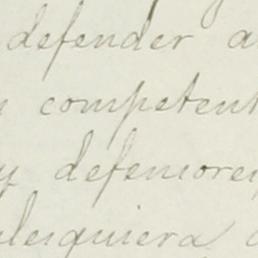 defender a
competent
y defensores
lesquiera